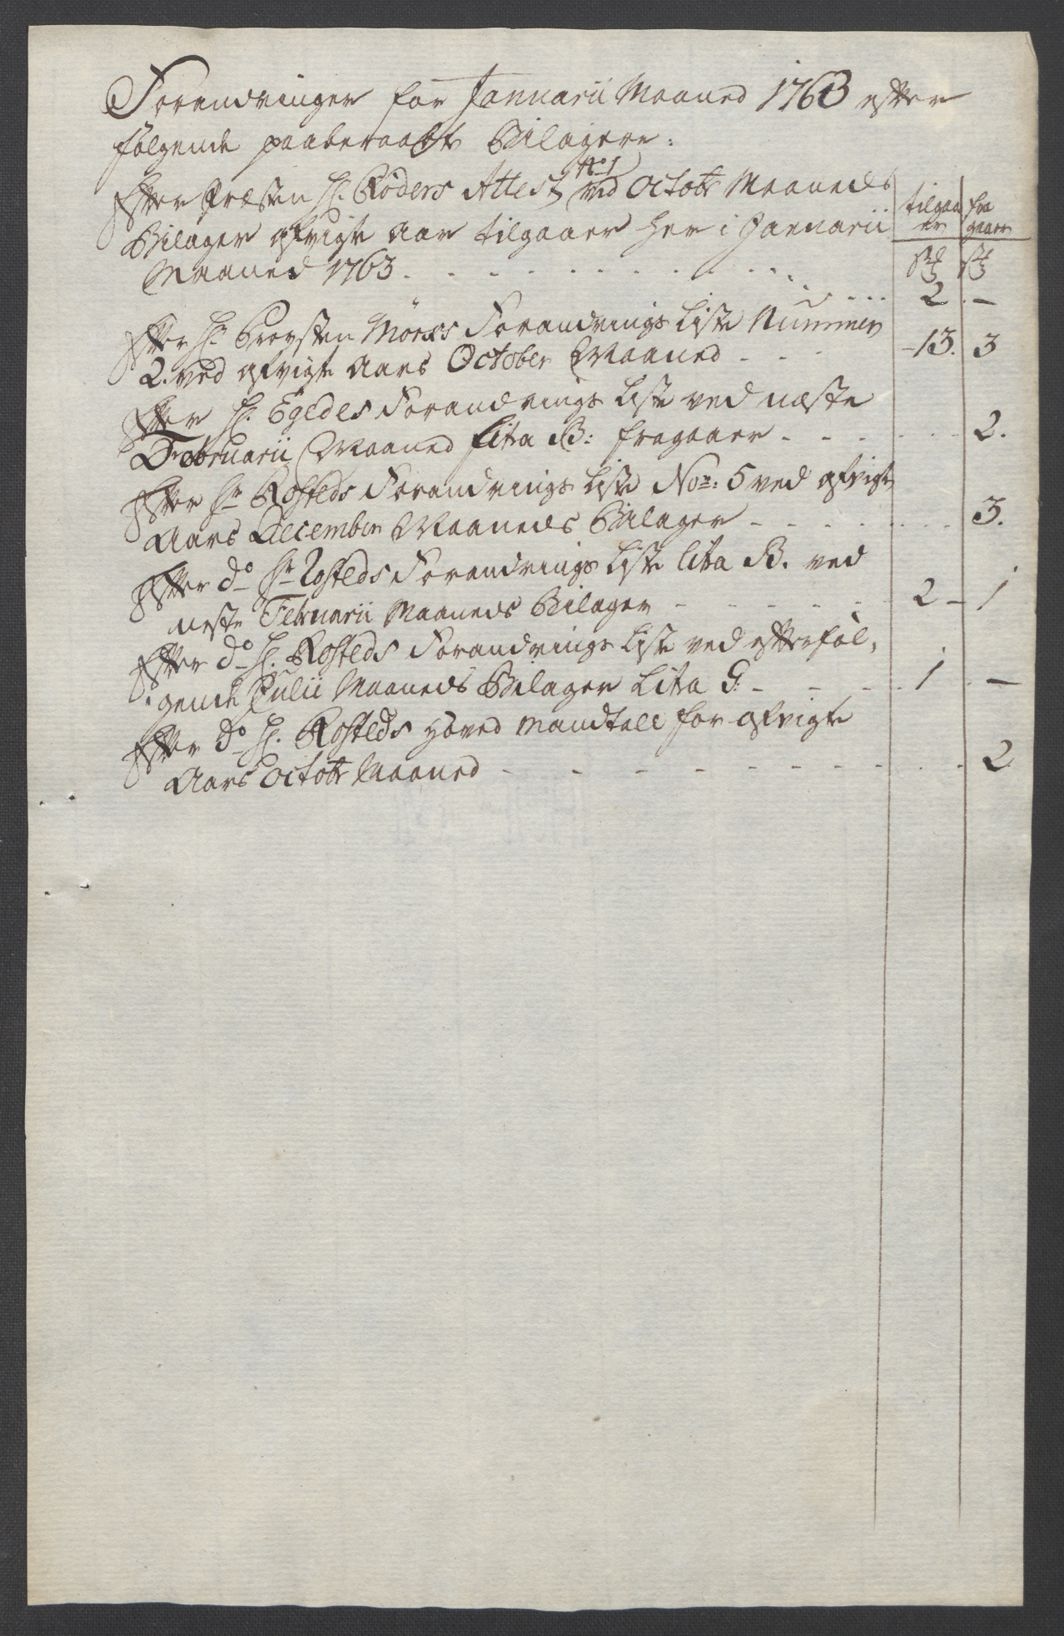 Forandringer for Januarii Maaned 1763 efter
følgende paaberaabte Bilagere:
Efter Præsten H: Röders Attest No 1 ved Octobr Maaneds
Bilager afvigte Aar tilgaaer her i Januarii
Maaned 1763
tilgaaer
fra gaaer
2 –
Efter Hr Provsten Mörchs Forandrings Liste Nummer
2. ved afvigte Aars October Maaned - - - 13. 3
Efter H: Egedes Forandrings Liste ved næste
Februarii Maaned Lita B: fragaaer - - - 2.
Efter Hr Rosteds Forandrings Liste No: 5 ved afvigte
Aars December Maaneds Bilager - - - 3.
Efter do Hr Rosteds Forandrings Liste Lita B. ved
neste Februarii Maaneds Bilager - - - 2 – 1
Efter do H. Rosteds Forandrings Liste ved efterføl,
gende Julii Maaneds Bilager Lita G: - - - 1 –
Efter do H. Rosteds Hoved Mandtall for afvigte
Aars Octobr Maaned - - - 2